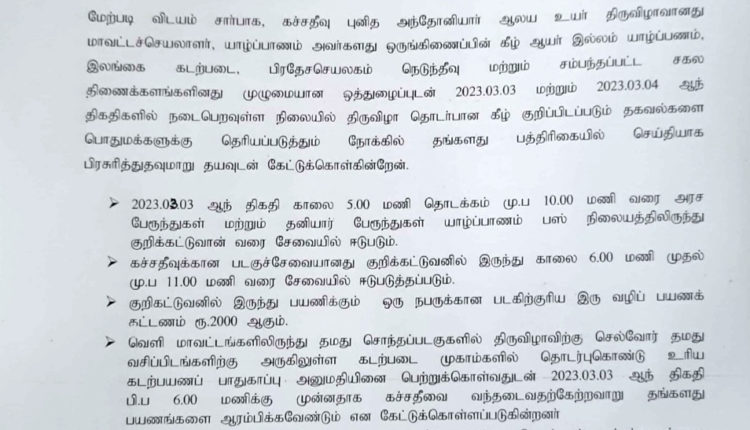 மேற்படி விடயம் சார்பாக, கச்சதீவு புனித அந்தோனியார் ஆலய உயர் திருவிழாவானது
மாவட்டச்செயலாளர், யாழ்ப்பாணம் அவர்களது ஒருங்கிணைப்பின் கீழ் ஆயர் இல்லம் யாழ்ப்பணம்,
இலங்கை கடற்படை, பிரதேசசெயலகம் நெடுந்தீவு மற்றும் சம்பந்தப்பட்ட சகல
திணைக்களங்களினது முழுமையான ஒத்துழைப்புடன் 2023.03.03 மற்றும் 2023.03.04 ஆந்
திகதிகளில் நடைபெறவுள்ள நிலையில் திருவிழா தொடர்பான கீழ் குறிப்பிடப்படும் தகவல்களை
பொதுமக்களுக்கு தெரியப்படுத்தும் நோக்கில் தங்களது பத்திரிகையில் செய்தியாக
பிரசுரித்துதவுமாறு தயவுடன் கேட்டுக்கொள்கின்றேன்.
➤ 2023.03.03 ஆந் திகதி காலை 5.00 மணி தொடக்கம் மு.ப 10.00 மணி வரை அரச
பேரூந்துகள் மற்றும் தனியார் பேரூந்துகள் யாழ்ப்பாணம் பஸ் நிலையத்திலிருந்து
குறிக்கட்டுவான் வரை சேவையில் ஈடுபடும்.
➤ கச்சதீவுக்கான படகுச்சேவையானது குறிக்கட்டுவனில் இருந்து காலை 6.00 மணி முதல்
மு.ப 11.00 மணி வரை சேவையில் ஈடுபடுத்தப்படும்.
➤ குறிகட்டுவனில் இருந்து பயணிக்கும் ஒரு நபருக்கான படகிற்குரிய இரு வழிப் பயணக்
கட்டணம் ரூ.2000 ஆகும்.
➤ வெளி மாவட்டங்களிலிருந்து தமது சொந்தப்படகுகளில் திருவிழாவிற்கு செல்வோர் தமது
வசிப்பிடங்களிற்கு அருகிலுள்ள கடற்படை முகாம்களில் தொடர்புகொண்டு உரிய
கடற்பயணப் பாதுகாப்பு அனுமதியினை பெற்றுக்கொள்வதுடன் 2023.03.03 ஆந் திகதி
பி.ப 6.00 மணிக்கு முன்னதாக கச்சதீவை வந்தடைவதற்கேற்றவாறு தங்களது
பயணங்களை ஆரம்பிக்கவேண்டும் என கேட்டுக்கொள்ளப்படுகின்றனர்